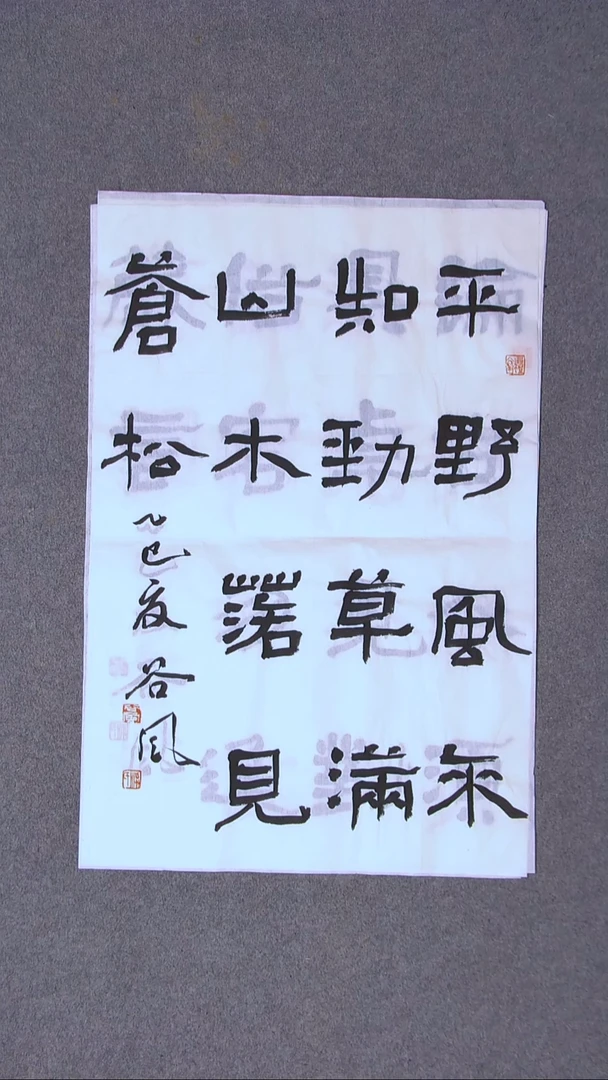 平野風来
知勁草滿
山木落見
蒼松乙巳夏谷風